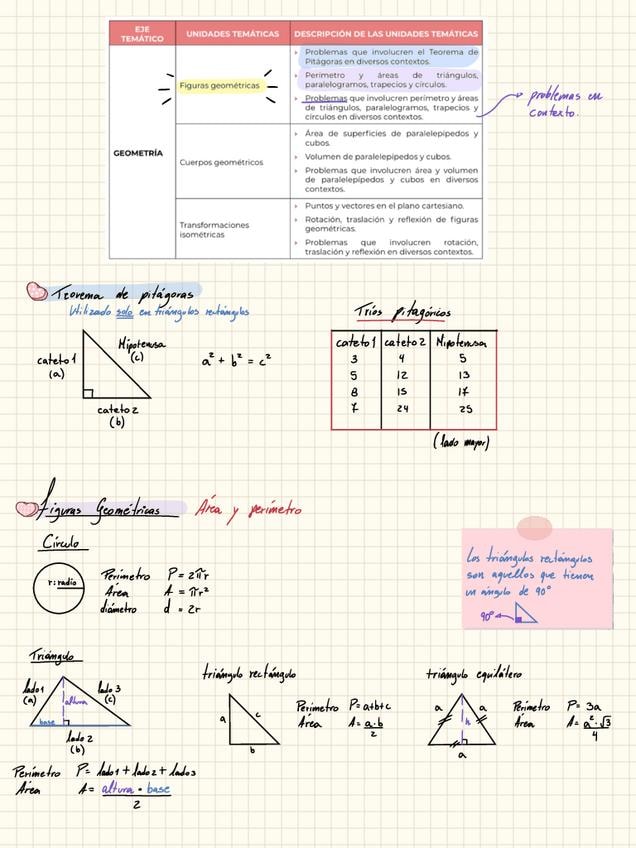 EJE TEMÁTICO
UNIDADES TEMÁTICAS
DESCRIPCIÓN DE LAS UNIDADES TEMÁTICAS
GEOMETRÍA
Figuras geométricas
Problemas que involucren el Teorema de
Pitágoras en diversos contextos.
Perímetro y áreas de triángulos,
paralelogramos, trapecios y círculos.
Problemas que involucren perímetro y áreas
de triángulos, paralelogramos, trapecios y
círculos en diversos contextos.
problemas en
contexto.
Cuerpos geométricos
Área de superficies de paralelepípedos y
cubos.
Volumen de paralelepípedos y cubos.
Problemas que involucren área y volumen
de paralelepípedos y cubos en diversos
contextos.
Transformaciones
isométricas
Puntos y vectores en el plano cartesiano.
Rotación, traslación y reflexión de figuras
geométricas.
Problemas que involucren rotación,
traslación y reflexión en diversos contextos.
Teorema de pitágoras
Utilizado solo en triángulos rectángulos
cateto 1
(a)
Hipotenusa
(c)
cateto 2
(b)
a² + b² = c²
Tríos pitagóricos
cateto 1 cateto 2 Hipotenusa
3 4 5
5 12 13
8 15 17
7 24 25
(lado mayor)
Figuras Geométricas Área y perímetro
Círculo
r: radio
Perímetro P = 2πr
Área A = πr²
diámetro d = 2r
Los triángulos rectángulos
son aquellos que tienen
un ángulo de 90°
90°
Triángulo
lado 1
(a)
altura
lado 3
(c)
base
lado 2
(b)
Perímetro P = lado 1 + lado 2 + lado 3
Área A = altura · base
2
triángulo rectángulo
a
c
b
Perímetro P = a+b+c
Área A = a·b
2
triángulo equilátero
a
a
h
a
Perímetro P = 3a
Área A = a²·√3
4